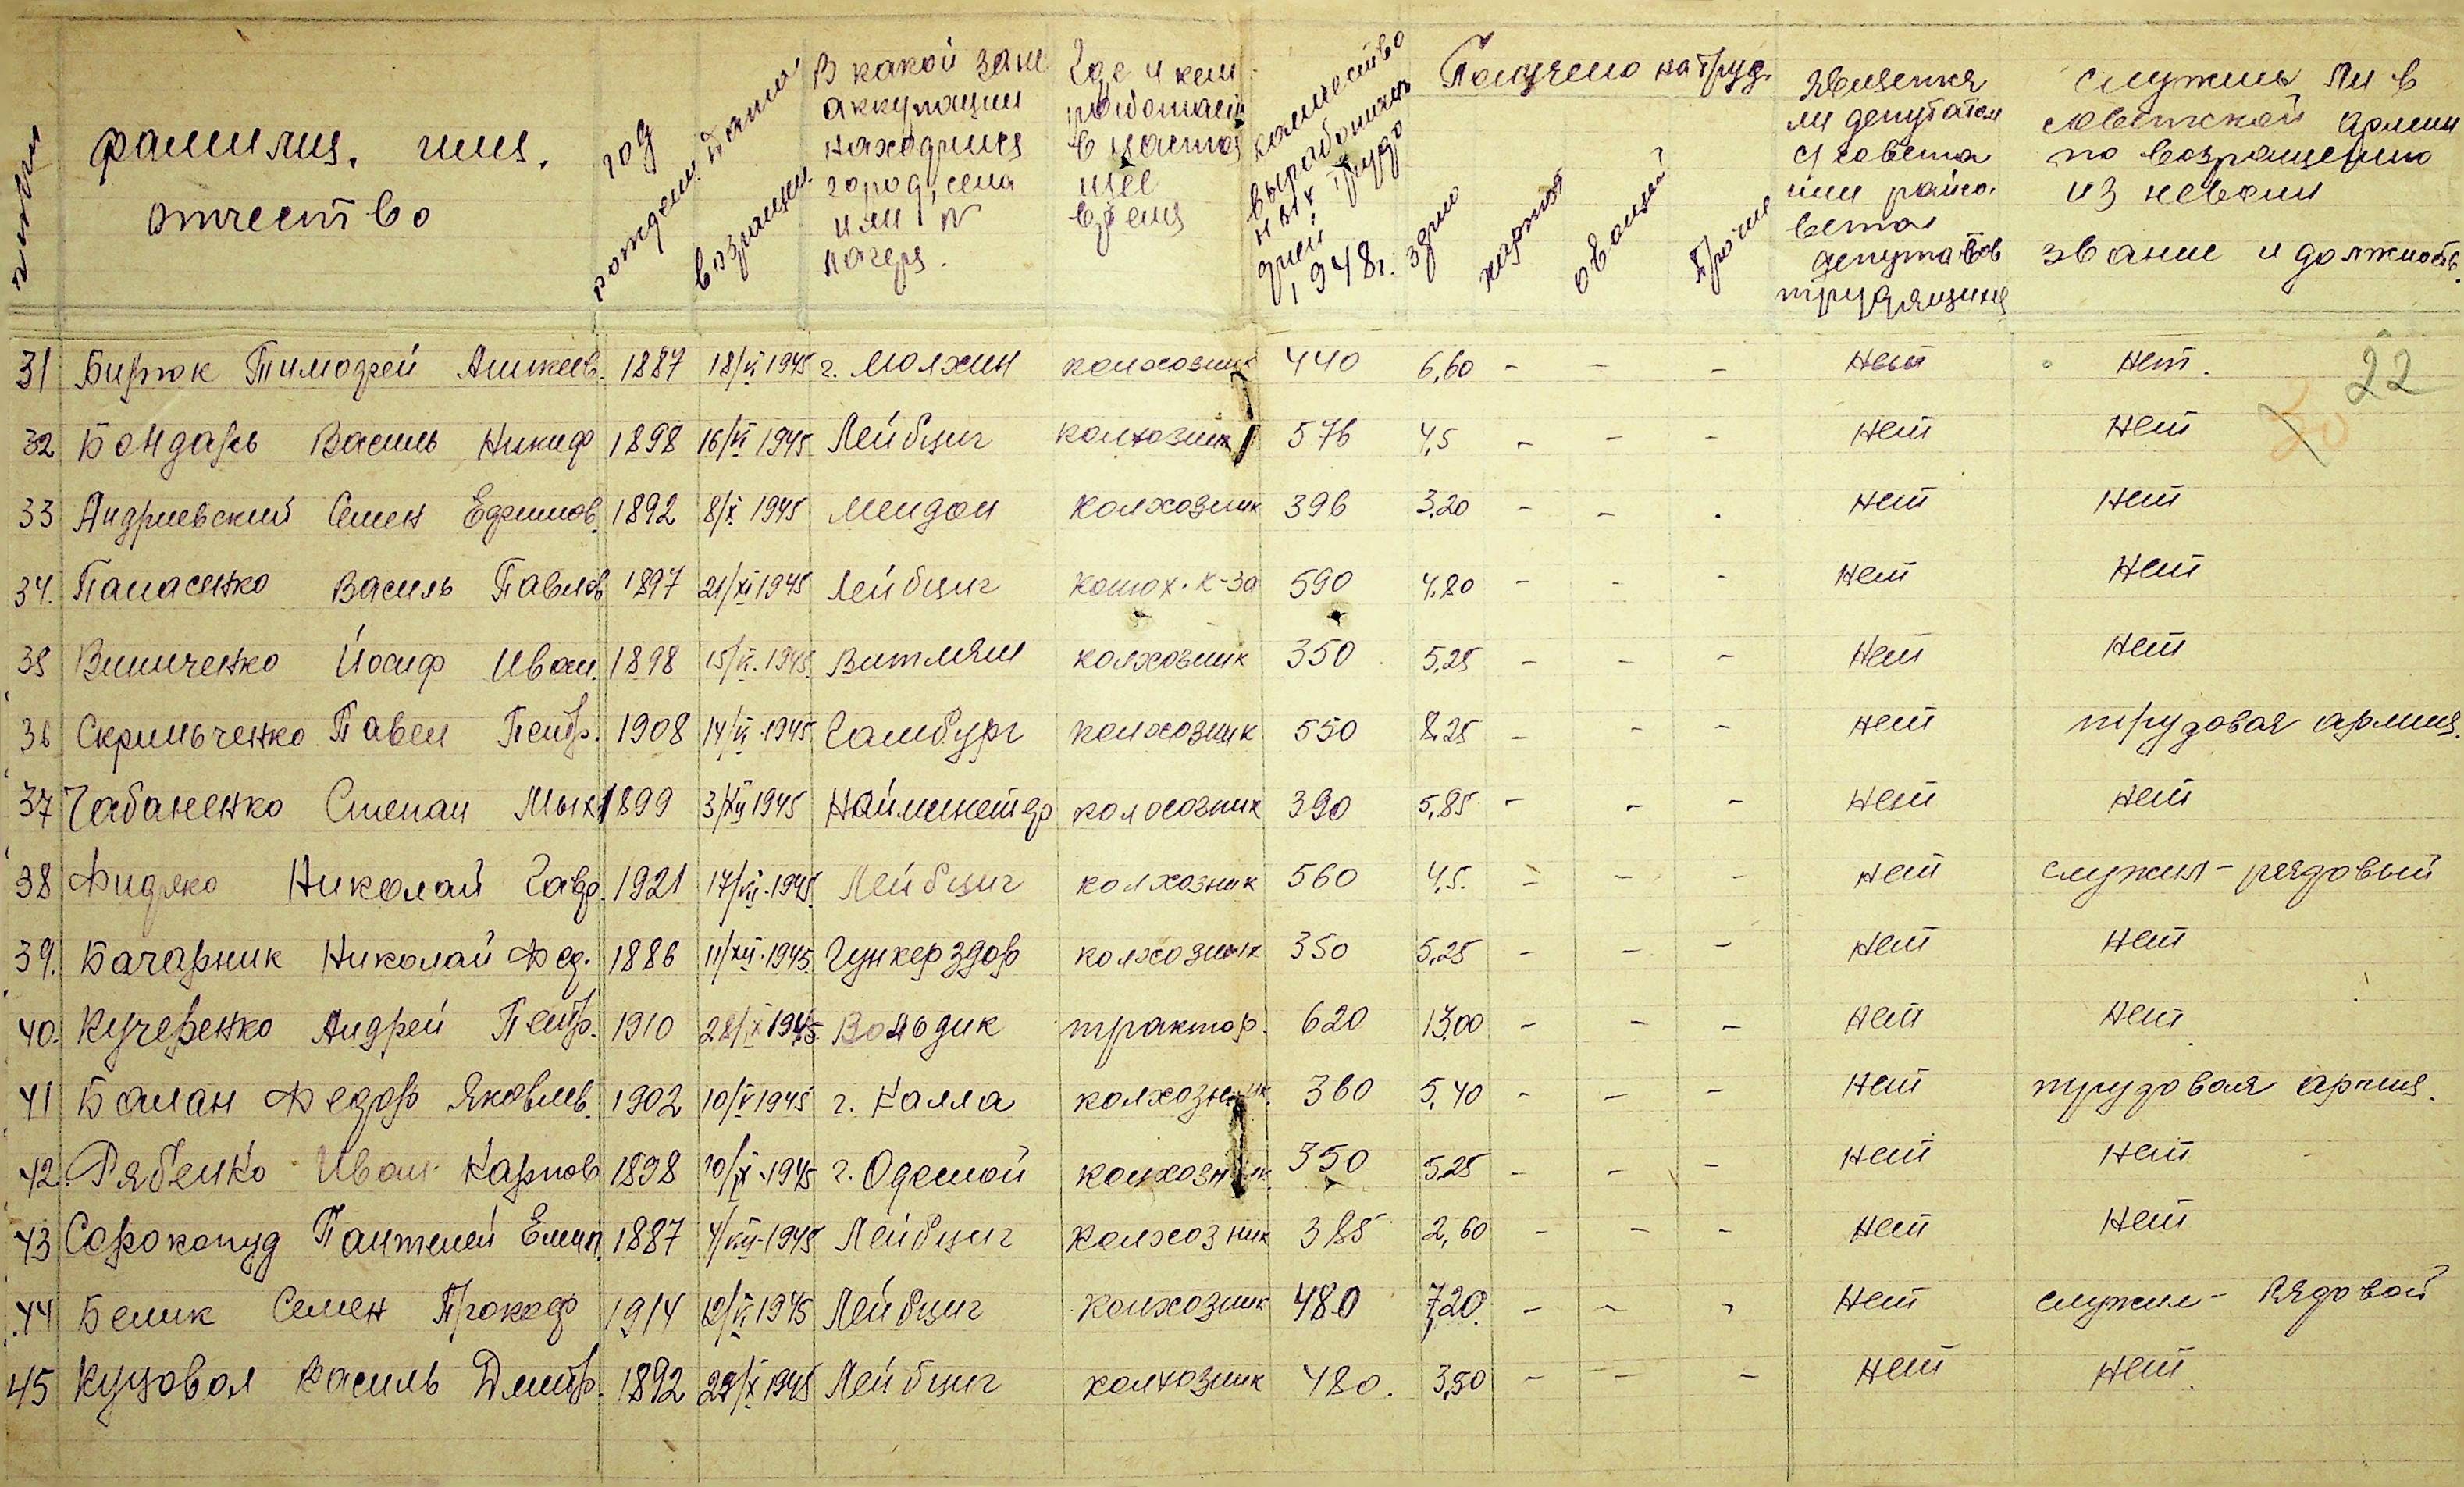 фамилия, имя,
отчество
год
рожден.
дата
возращен.
В какой зане
аккупации
находился
город, села
или №
лагеря.
Где и кем
работает
в настоя
щее
время
количество
выработанн
ных трудо
дней
1948г.
Получено на Труд.
зерно
картоф
овощей
Прочие
Является
ли депутатом
с/совета
или райсо
вета
депутатов
трудящихся
служил ли в
советской армии
по возращению
из неволи
звание и должность.
31 Бирюк Тимофей Алексеев. 1887 18/VI 1945 г. Молхин колхозник 440 6,60 - - - Нет нет. 22
32 Бондарь Василь Никиф 1898 16/VI 1945 Лейбциг колхозник 576 4,5 - - - нет нет
33 Андриевский Семен Ефимов. 1892 8/X 1945 Мендон колхозник 396 3,20 - - . нет нет
34. Панасенко Василь Павлов 1897 21/XI 1945 Лейбциг конюх. к-за 590 4,80 - - - нет нет
35 Виниченко Йосиф Иван. 1898 15/VI. 1945. Витмян колхозник 350 5,25 - - - нет нет
36 Скрильченко Павел Петр. 1908 14/VI.1945 Гамбург колхозник 550 8,25 - - - нет трудовая армия.
37 Чабаненко Степан Мих 1899 3/XII 1945 колхозник 390 5,85 - - - нет нет
38 Фидяко Николай Гавр. 1921 17/VII.1945. Лейбциг колхозник 560 4,5. - - - нет служил - рядовый
39. Бачарник Николай Фед. 1886 11/XII.1945 Гункерздор колхозник 350 5,25 - - - нет нет
40. Кучеренко Андрей Петр. 1910 28/X 1945 Вольдик трактор. 620 13,00 - - - нет нет
41 Балан Федор Яковлев. 1902 10/V 1945 г. Калла колхозник. 360 5,40 - - - нет трудовая армия.
42. Рябенко Иван Карпов 1898 10/IX.1945 г. Одемой колхозник. 350 5,25 - - - нет нет
43 Сорокопуд Пантелей Емил. 1887 4/VII.1945 Лейбциг колхозник 385 2,60 - - - нет нет
44 Белик Семен Прокоф 1914 12/VI 1945 Лейбциг колхозник 480 7,20. - - - нет служил - Рядовой
45 Куцовол Василь Дмитр. 1892 29/X 1945 Лейбциг колхозник 480. 3,50 - - - нет нет.